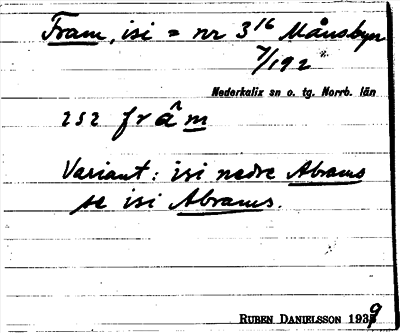 Fram, isi = nr 3¹⁶ Månsbyn
7/192
Nederkalix sn o. tg. Norrb. län
isi frâm
Variant: isi nedre Abrams
se isi Abrams.
RUBEN DANIELSSON 1939